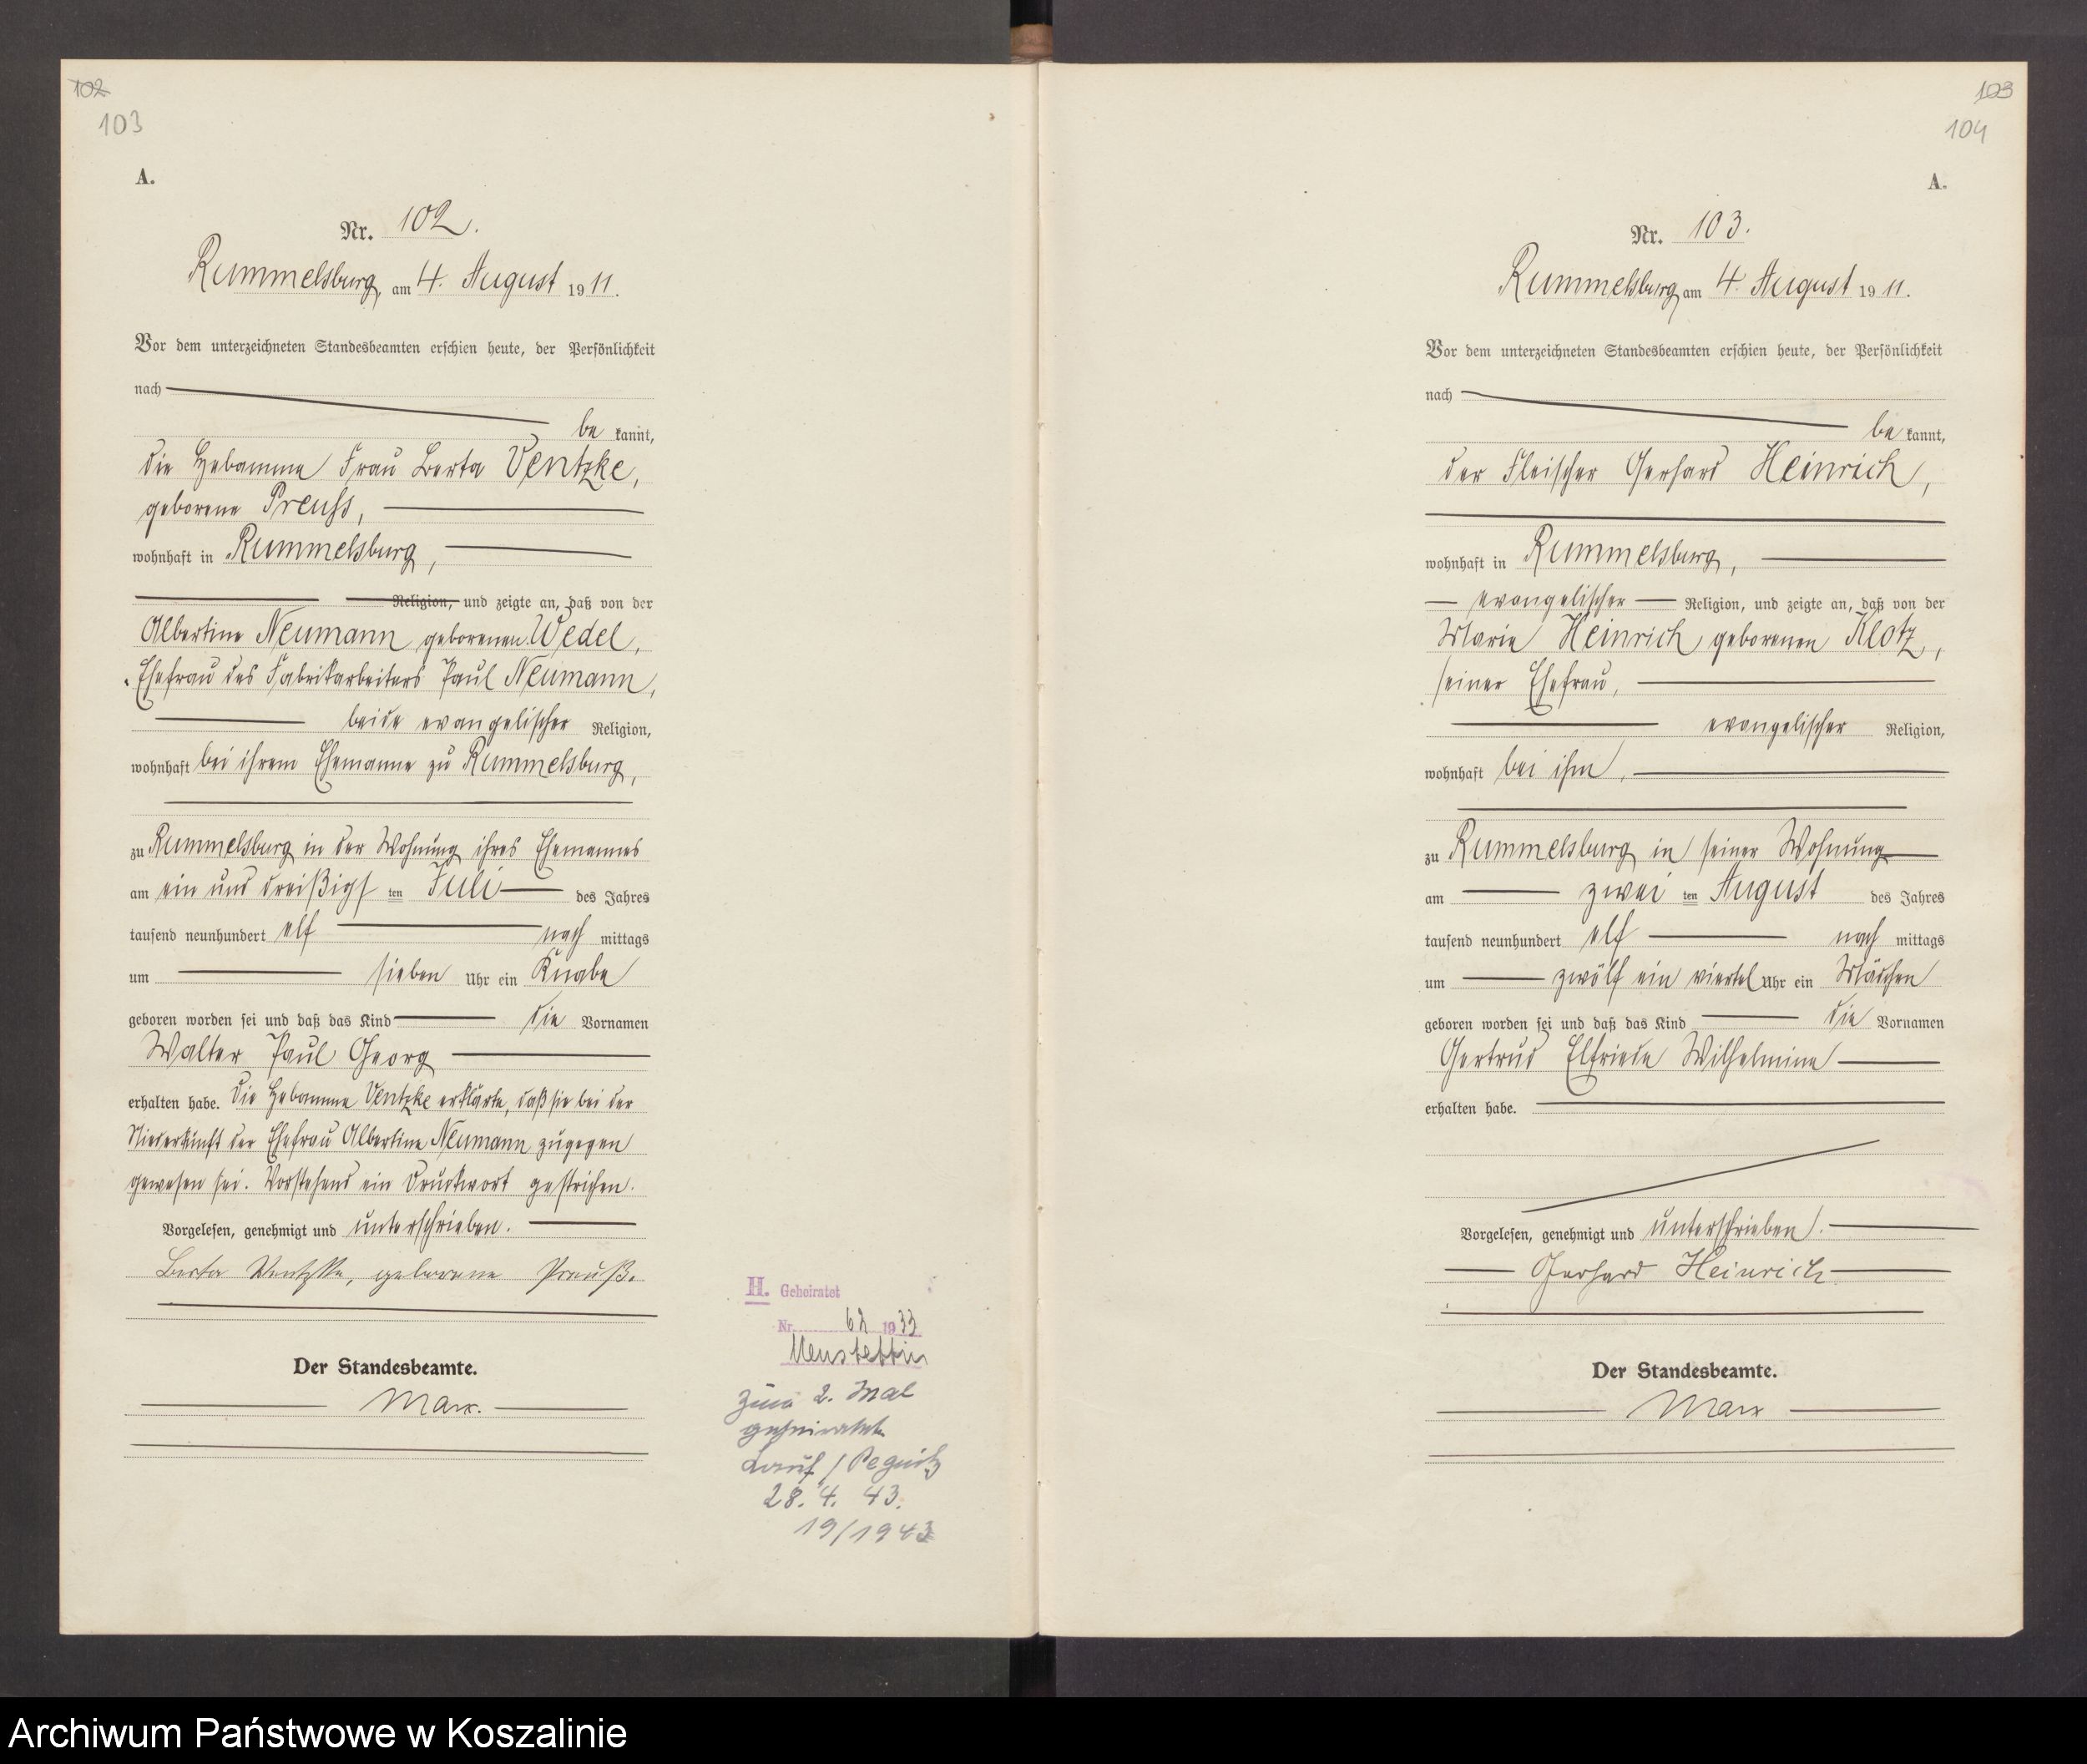 102
103
A.
Nr. 102.
Rummelsburg, am 4. August 1911.
Vor dem unterzeichneten Standesbeamten erschien heute, der Persönlichkeit
nach
be kannt,
die Hebamme Frau Berta Ventzke,
geborene Preuß,
wohnhaft in Rummelsburg,
Religion, und zeigte an, daß von der
Albertine Neumann geborenen Wedel,
Ehefrau des Fabrikarbeiters Paul Neumann,
beide evangelischer Religion,
wohnhaft bei ihrem Ehemanne zu Rummelsburg,
zu Rummelsburg in der Wohnung ihres Ehemannes
am ein und dreißigs ten Juli des Jahres
tausend neunhundert elf nach mittags
um sieben Uhr ein Knabe
geboren worden sei und daß das Kind die Vornamen
Walter Paul Georg
erhalten habe. Die Hebamme Ventzke erklärte, daß sie bei der
Niederkunft der Ehefrau Albertine Neumann zugegen
gewesen sei. Vorstehend ein Druckwort gestrichen.
Vorgelesen, genehmigt und unterschrieben.
Berta Ventzke, geborene Preuß.
Der Standesbeamte.
Marx.
H. Geheiratet
Nr. 62 1933
Neustettin
zum 2. Mal
geheiratet
Lauf / Pegnitz
28. 4. 43.
19/1943
103
104
A.
Nr. 103.
Rummelsburg am 4. August 1911.
Vor dem unterzeichneten Standesbeamten erschien heute, der Persönlichkeit
nach
be kannt,
der Fleischer Gerhard Heinrich,
wohnhaft in Rummelsburg,
evangelischer Religion, und zeigte an, daß von der
Marie Heinrich geborenen Klotz,
seiner Ehefrau,
evangelischer Religion,
wohnhaft bei ihm,
zu Rummelsburg in seiner Wohnung
am zwei ten August des Jahres
tausend neunhundert elf nach mittags
um zwölf ein viertel Uhr ein Mädchen
geboren worden sei und daß das Kind die Vornamen
Gertrud Elfriede Wilhelmine
erhalten habe.
Vorgelesen, genehmigt und unterschrieben.
Gerhard Heinrich
Der Standesbeamte.
Marx
Archiwum Państwowe w Koszalinie